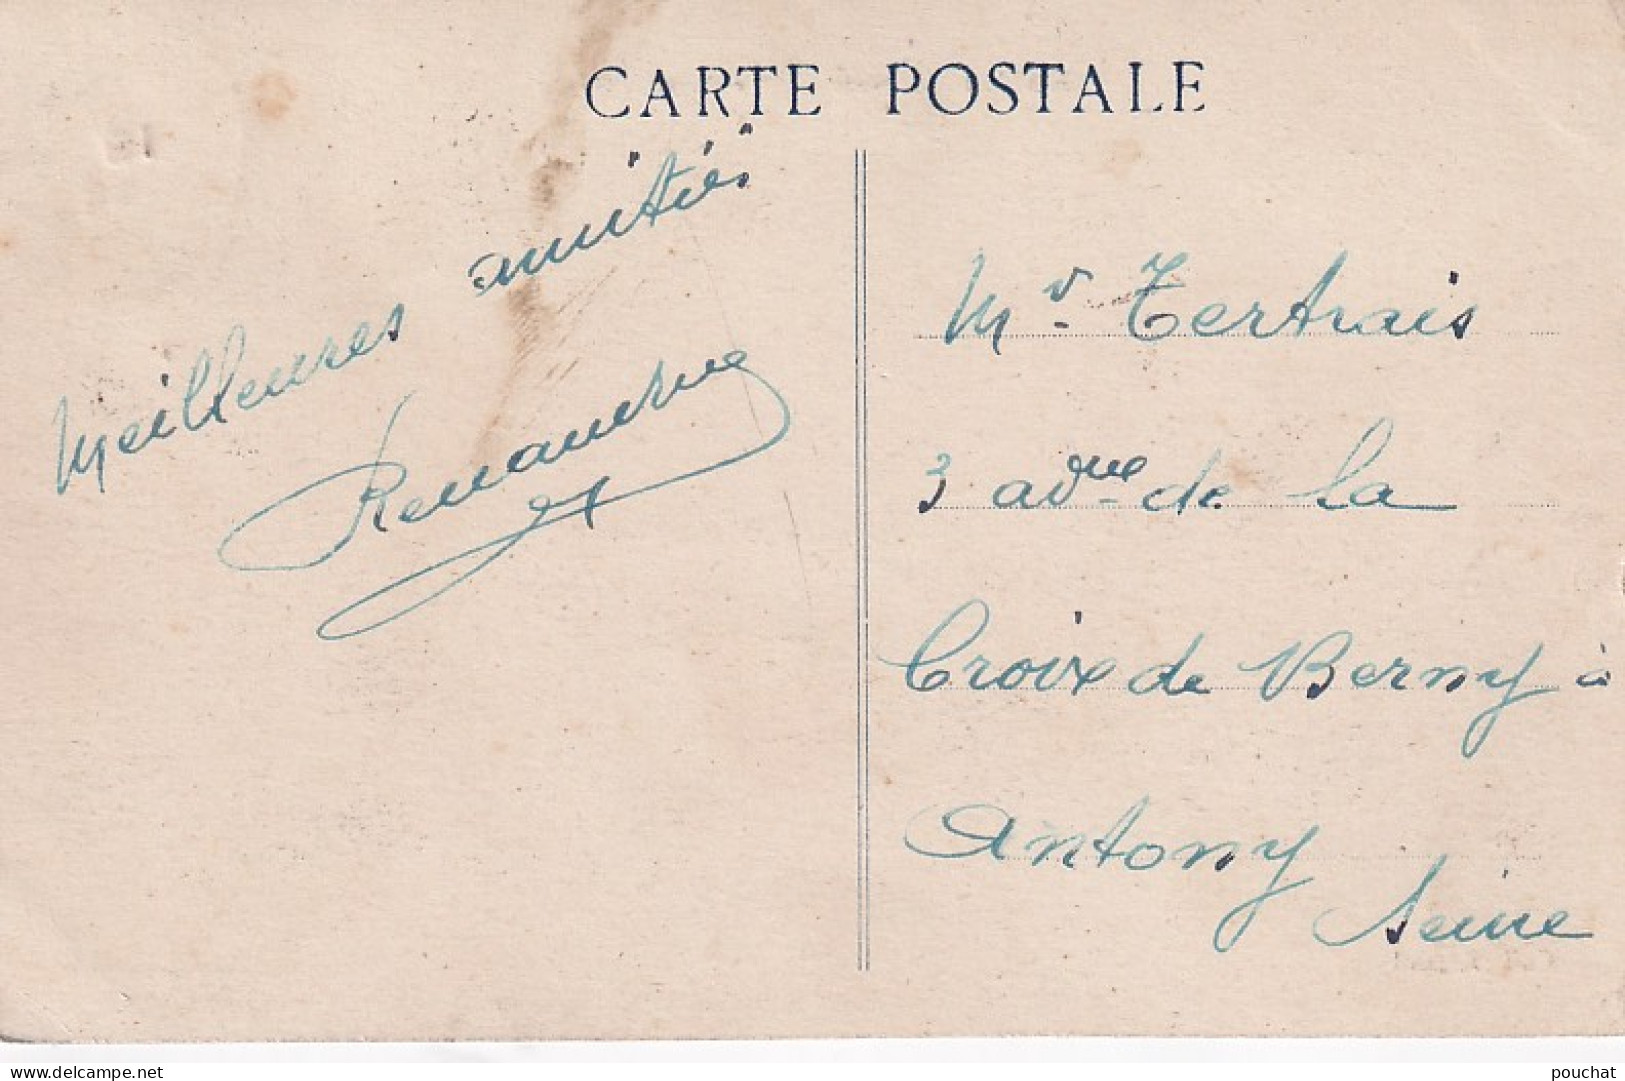 CARTE POSTALE
Meilleures amitiés
Mr. Tertrais
3 avque de la
Croix de Berny à
Antony
Seine
www.delcampe.net
pouchat